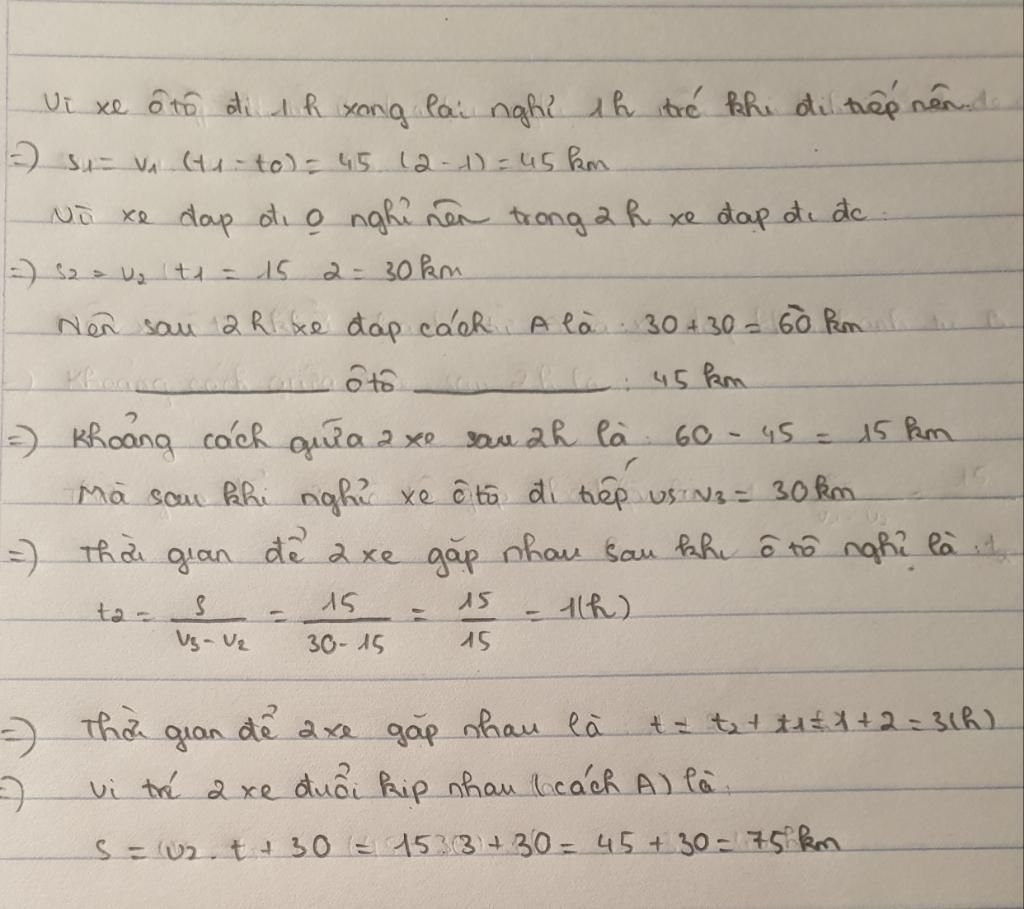 Vì xe ôtô đi 1h xong lại nghỉ 1h trc khi đi tiếp nên.
=) S1 = V1 (t1 - t0) = 45 (2 - 1) = 45 km
Nò xe đạp đi ko nghỉ nên trong 2h xe đạp đi đc:
=) S2 = V2 t1 = 15 2 = 30 km
Nên sau 2h xe đạp cách A là: 30 + 30 = 60 km
______ ôtô ______: 45 km
=) Khoảng cách giữa 2 xe sau 2h là: 60 - 45 = 15 km
Mà sau khi nghỉ xe ôtô đi tiếp vs V3 = 30 km
=) Thời gian để 2 xe gặp nhau sau khi ôtô nghỉ là:
t2 = S / (V3 - V2) = 15 / (30 - 15) = 15 / 15 = 1(h)
=) Thời gian để 2 xe gặp nhau là t = t2 + t1 = 1 + 2 = 3(h)
=) Vị trí 2 xe đuổi kịp nhau (cách A) là:
S = V2. t + 30 = 15.(3) + 30 = 45 + 30 = 75 km